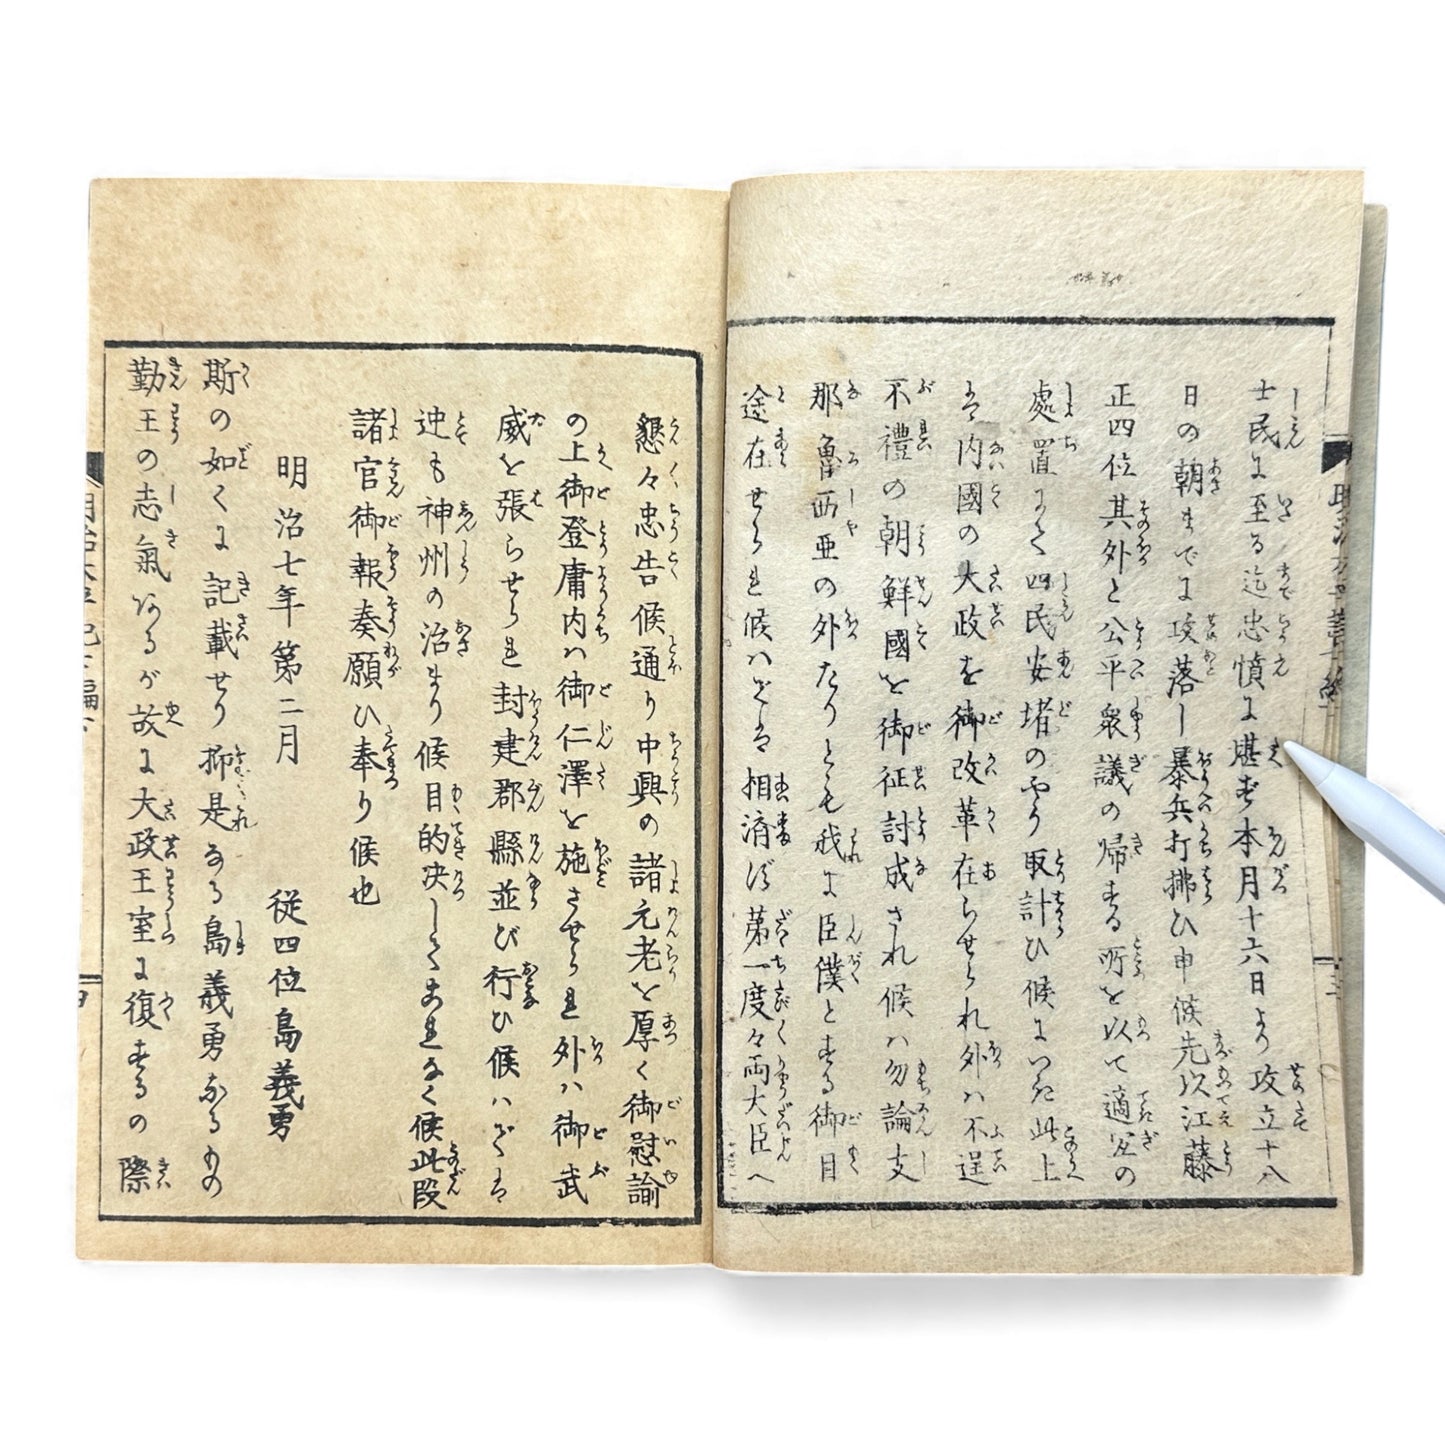 士民に至る迄忠憤に堪ず本月十六日より攻立十八
日の朝までに攻落し暴兵打拂ひ申候先以江藤
正四位其外と公平衆議の帰する所を以て適宜の
處置にて四民安堵のやう取計ひ候に付此上
は内國の大政を御改革在らせられ外ハ不逞
不禮の朝鮮國を御征討成され候ハ勿論支
那魯西亜の外たりとも我に臣僕とする御目
途在せられ候ハでは相済ず第一度々両大臣へ
懇々忠告候通り中興の諸元老を厚く御慰諭
の上御登庸内ハ御仁澤を施させられ外ハ御武
威を張らせられ封建郡縣並び行ひ候ハでは
迚も神州の治まり候目的決してこれなく候此段
諸官御報奏願ひ奉り候也
明治七年第二月
従四位島義勇
斯の如くに記載せり抑是なる島義勇なるもの
勤王の志氣あるが故に大政王室に復するの際